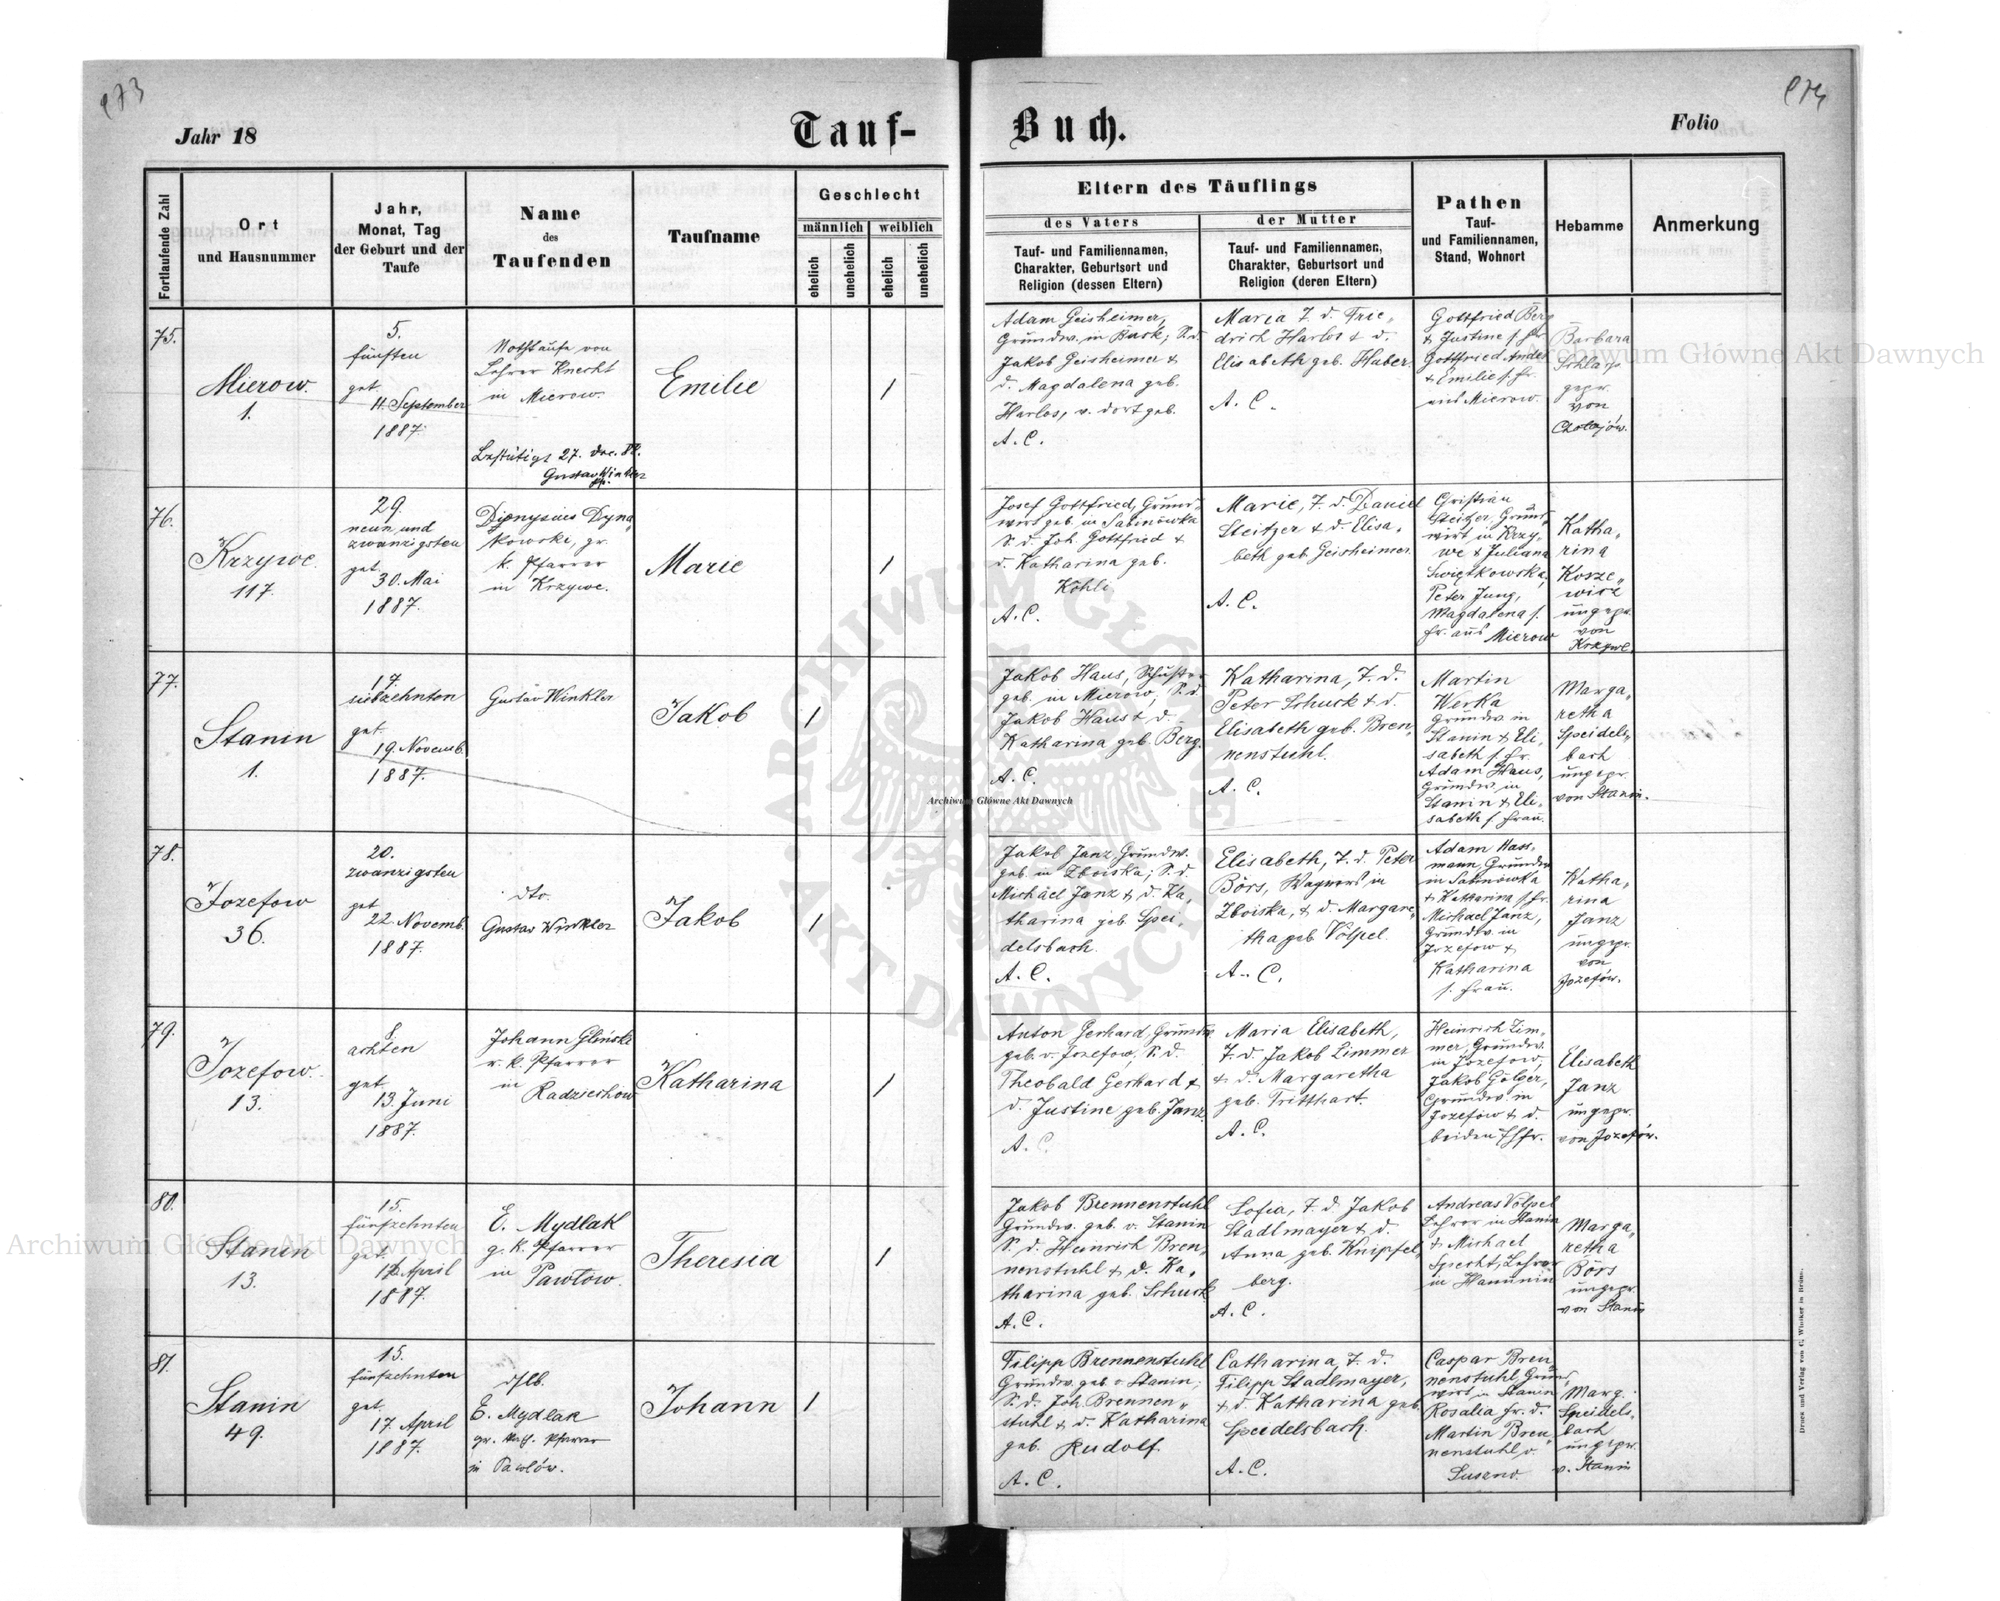 973
974
Jahr 18
Tauf-
Buch.
Folio
Fortlaufende Zahl
Ort
und Hausnummer
Jahr,
Monat, Tag
der Geburt und der
Taufe
Name
des
Taufenden
Taufname
Geschlecht
männlich
weiblich
ehelich
unehelich
ehelich
unehelich
Eltern des Täuflings
des Vaters
Tauf- und Familiennamen,
Charakter, Geburtsort und
Religion (dessen Eltern)
der Mutter
Tauf- und Familiennamen,
Charakter, Geburtsort und
Religion (deren Eltern)
Pathen
Tauf-
und Familiennamen,
Stand, Wohnort
Hebamme
Anmerkung
75.
Mierow
1.
5.
fünften
get.
11. September
1887.
Nothtaufe von
Lehrer Knecht
in Mierow.
Bestätigt 27. Dec. 87.
Gustav Winkler
Emilie
1
Adam Geisheimer,
Grundw. in Busk; S. d.
Jakob Geisheimer &
d. Magdalena geb.
Harlos, v. dort geb.
A. C.
Maria T. d. Frie-
drich Harlos & d.
Elisabeth geb. Huber.
A. C.
Gottfried Berg
& Justine s. Fr.
Gottfried Andes
& Emilie s. Fr.
aus Mierow.
Barbara
gepr.
von
Cholojów.
76.
Krzywe
117.
29.
neun und
zwanzigsten
get.
30. Mai
1887.
Dyonysius Dyna
kowski, gr.
k. Pfarrer
in Krzywe.
Marie
1
Josef Gottfried, Grund-
wirt geb. in Sabinówka
S. d. Joh. Gottfried &
d. Katharina geb.
Köhli.
A. C.
Marie, T. d. Daniel
Steitzer & d. Elisa-
beth geb. Geisheimer.
A. C.
Christian
Steitzer, Grund-
wirt in Krzy-
we & Juliana
Swiętkowska,
Peter Jung,
Magdalena s.
Fr. aus Mierow
Katha-
rina
Kosze-
wicz
ungepr.
von
Krzywe.
77.
Stanin
1.
17.
siebzehnten
get.
19. Novemb.
1887.
Gustav Winkler
Jakob
1
Jakob Haus, Schuster
geb. in Mierow, S. d.
Jakob Haus & d.
Katharina geb. Berg.
A. C.
Katharina, T. d.
Peter Schuck & d.
Elisabeth geb. Bren-
nenstuhl.
A. C.
Martin
Werka
Grundw. in
Stanin & Eli-
sabeth s. Fr.
Adam Haus,
Grundw. in
Stanin & Eli-
sabeth s. Frau.
Marga-
retha
Speidels-
bach
ungepr.
von Stanin.
78.
Jozefow
36.
20.
zwanzigsten
get.
22. Novemb.
1887.
dto.
Gustav Winkler
Jakob
1
Jakob Janz, Grundw.
geb. in Zboiska; S. d.
Michael Janz & d. Ka-
tharina geb. Spei-
delsbach.
A. C.
Elisabeth, T. d. Peter
Börs, Wagners in
Zboiska, & d. Margare-
tha geb. Völpel.
A. C.
Adam Hass-
mann, Grundw.
in Sabinówka
& Katharina s. Fr.
Michael Janz,
Grundw. in
Jozefow &
Katharina
s. Frau.
Katha-
rina
Janz
ungepr.
von
Jozefów.
79.
Jozefow.
13.
8.
achten
get.
13. Juni
1887.
Johann Gliński
r. k. Pfarrer
in
Radziechow
Katharina
1
Anton Gerhard, Grundw.
geb. v. Jozefow, S. d.
Theobald Gerhard &
d. Justine geb. Janz.
A. C.
Maria Elisabeth,
T. d. Jakob Zimmer
& d. Margaretha
geb. Tritthart.
A. C.
Heinrich Zim-
mer, Grundw.
in Jozefow,
Jakob Gölzer,
Grundw. in
Jozefów & d.
beiden Ehfr.
Elisabeth
Janz
ungepr.
von Jozefów.
80.
Stanin
13.
15.
fünfzehnten
get.
April
1887.
E. Mydlak
g. k. Pfarrer
in Pawłow.
Theresia
1
Jakob Brennenstuhl
Grundw. geb. v. Stanin
S. d. Heinrich Bren-
nenstuhl & d. Ka-
tharina geb. Schuck
A. C.
Sofia, T. d. Jakob
Stadlmayer & d.
Anna geb. Knipfel-
berg.
A. C.
Andreas Völpel
Lehrer in Stanin
& Michael
Specht, Lehrer
in Hanunin
Marga-
retha
Börs
ungepr.
von Stanin
81.
Stanin
49.
15.
fünfzehnten
get.
17. April
1887.
dslb.
E. Mydlak
gr. kath. Pfarrer
in Pawłów.
Johann
1
Filipp Brennenstuhl
Grundw. geb. v. Stanin;
S. d. Joh. Brennen-
stuhl & d. Katharina
geb. Rudolf.
A. C.
Catharina, T. d.
Filipp Stadlmayer,
& d. Katharina geb.
Speidelsbach.
A. C.
Caspar Bren
nenstuhl, Grund-
wirt in Stanin
Rosalia Fr. d.
Martin Bren
nenstuhl v.
Suszno.
Marg.
Speidels-
bach
ungepr.
v. Stanin
Druck und Verlag von C. Winiker in Brünn.
Archiwum Główne Akt Dawnych
Archiwum Główne Akt Dawnych
Archiwum Główne Akt Dawnych
ARCHIWUM GŁÓWNE AKT DAWNYCH